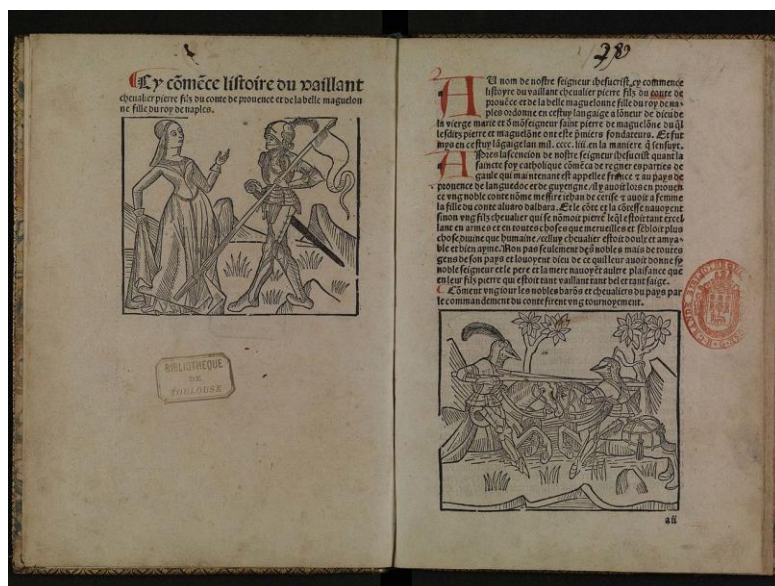 Cy cōmēce listoire du vaillant
chevalier pierre filz du conte de prouence et de la belle maguelon
ne fille du roy de naples.
BIBLIOTHEQUE
DE
TOULOUSE
789
AU nom de nostre seigneur ihesucrist, cy commence
listoyre du vaillant chevalier pierre filz du conte de
prouēce et de la belle maguelonne fille du roy de na-
ples ordonne en cestuy langaige a lōneur de dieu de
la vierge marie et d mōseigneur saint pierre de maguelōne du ql
lesditz pierre et maguelōne ont este p̄miers fondateurs. Et fut
mys en cestuy lāgaige lan mil. cccc. liii. en la maniere q̄ sensuyt.
Apres lascencion de nostre seigneur ihesucrist quant la
saincte foy catholique cōmēca de regner es parties de
gaule qui maintenant est appellee frāce ⁊ au pays de
prouence de languedoc et de guyengne/ Il y auoit lors en prouen
ce vng noble conte nōme messire iehan de cerise ⁊ auoit a femme
la fille du conte aluaro dalbara. Et le cōte et la cōtesse nauoyent
sinon vng filz chevalier qui se nōmoit pierre leq̄l estoit tant excel
lant en armes et en toutes choses que merueilles et sēbloit plus
chose diuine que humaine/celluy chevalier estoit doulx et amya-
ble et bien ayme. Non pas seulement des nobles mais de toutes
gens de son pays et louoyent dieu de ce quil leur auoit donne sy
noble seigneur et le pere et la mere nauoyēt aultre plaisance que
en leur filz pierre qui estoit tant vaillant tant bel et tant saige.
Cōment vng iour les nobles barōs et chevaliers du pays par
le commandement du conte firent vng tournoyement.
aii